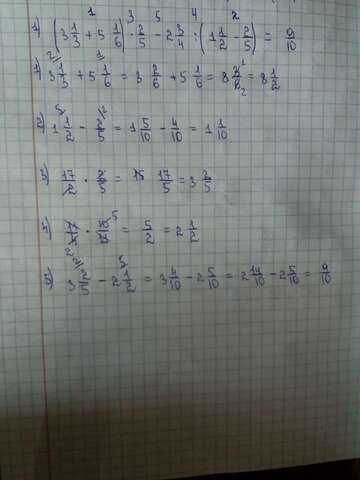 1 3 5 4 2
1) (3 1/3 + 5 1/6) · 2/5 - 2 3/4 : (1 1/2 - 2/5) = 9/10
1) 3 1/3 + 5 1/6 = 3 2/6 + 5 1/6 = 8 3/6 = 8 1/2
2) 1 1/2 - 2/5 = 1 5/10 - 4/10 = 1 1/10
3) 17/2 · 2/5 = 17/5 = 3 2/5
4) 11/4 · 10/11 = 5/2 = 2 1/2
5) 3 2/5 - 2 1/2 = 3 4/10 - 2 5/10 = 2 14/10 - 2 5/10 = 9/10